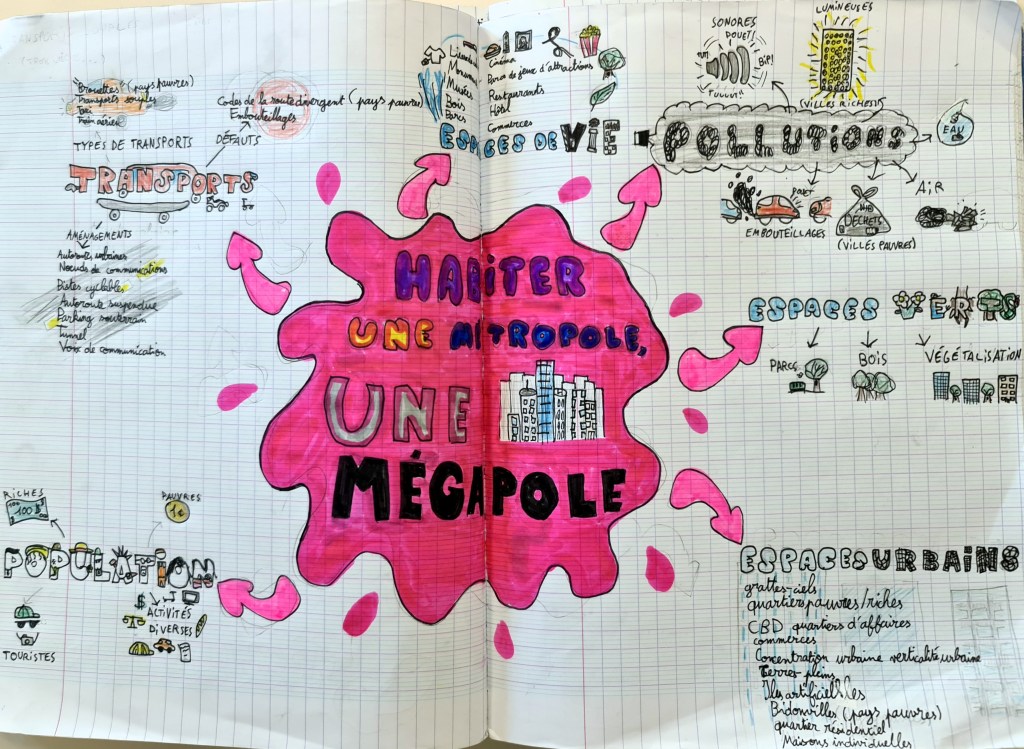 HABITER
UNE METROPOLE,
UNE
MÉGAPOLE
"Brouettes" (pays pauvres)
Transports souples
Train aérien
TYPES DE TRANSPORTS
Codes de la route divergent (pays pauvres)
Embouteillages
DÉFAUTS
TRANSPORTS
AMÉNAGEMENTS
Autoroutes urbaines
Noeuds de communications
Pistes cyclables
Autoroute suspendue
Parking souterrain
Tunnel
Voix de communication
Musées
Bois
Parcs
Cinéma
Parcs de jeux d'attractions
Restaurants
Hôtel
Commerces
ESPACES DE VIE
SONORES
POUET!
BIP!
LUMINEUSES
(VILLES RICHES)
POLLUTIONS
EAU
AIR
POUET
EMBOUTEILLAGES
DÉCHETS
(VILLES PAUVRES)
ESPACES VERTS
PARCS
BOIS
VÉGÉTALISATION
RICHES
100 $
PAUVRES
1€
POPULATION
TOURISTES
$
ACTIVITÉS
DIVERSES
ESPACES URBAINS
grattes-ciels
quartiers pauvres/riches
CBD quartiers d'affaires
commerces
Concentration urbaine verticalité urbaine
Terres-pleins
Iles artificielles
Bidonvilles (pays pauvres)
quartier résidentiel
Maisons individuelles